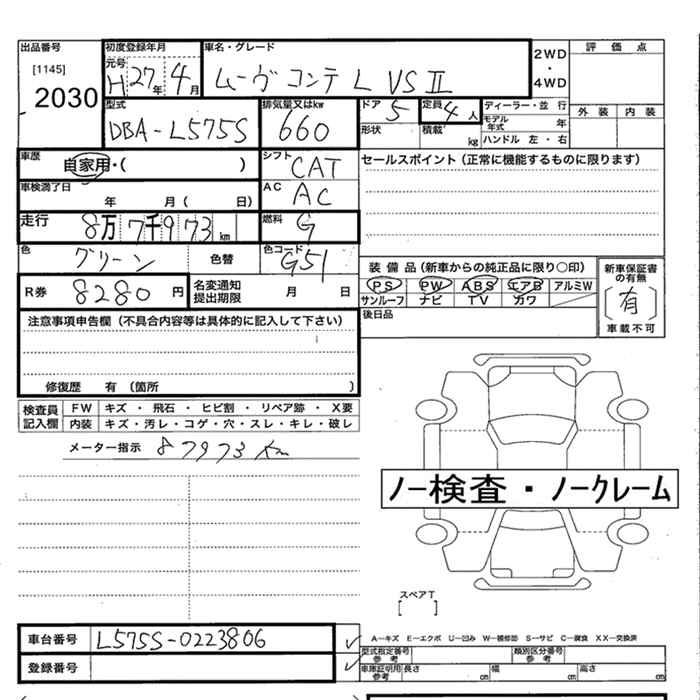 出品番号
[1145]
2030
初度登録年月
元号 H 27年 4月
車名・グレード
ムーヴ コンテ L VS II
2WD
・
4WD
評価点
外装 内装
型式
DBA-L575S
排気量又はkw
660
ドア 5
形状
定員 4人
積載 kg
ディーラー・並行
モデル年式 年
ハンドル 左・右
車歴
自家用・( )
シフト
CAT
セールスポイント(正常に機能するものに限ります)
車検満了日
年 月( 日)
AC
AC
走行
8万7千973 km
燃料
G
色
グリーン
色替
色コード
G51
装備品(新車からの純正品に限り○印)
PS PW ABS エアB アルミW
サンルーフ ナビ TV カワ
新車保証書の有無
[有]
車載不可
R券
8280 円
名変通知
提出期限
月 日
後日品
注意事項申告欄(不具合内容等は具体的に記入して下さい)
修復歴 有(箇所 )
検査員記入欄
FW キズ・飛石・ヒビ割・リペア跡・X要
内装 キズ・汚レ・コゲ・穴・スレ・キレ・破レ
メーター指示 87973 Km
ノー検査・ノークレーム
スペアT
[ ]
車台番号
L575S-0223806
登録番号
A−キズ E−エクボ U−凹み W−補修跡 S−サビ C−腐食 XX−交換済
型式指定番号
参考
類別区分番号
参考
車庫証明用
参考
長さ cm
幅 cm
高さ cm